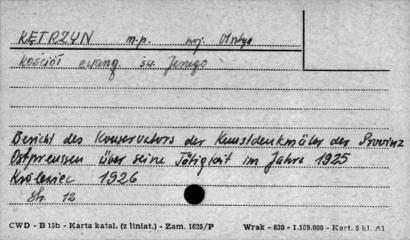 KĘTRZYN m.p. woj. Olsztyn
Kościół ewang. św. Jerzego
Bericht des Konservators der Kunstdenkmäler der Provinz
Ostpreussen über seine Tätigkeit im Jahre 1925
Królewiec 1926
Str. 12
CWD - B 15b - Karta katal. (z liniat.) - Zam. 1625/P Wrak - 830 - 1.159.000 - Kart. 5 kl. A1